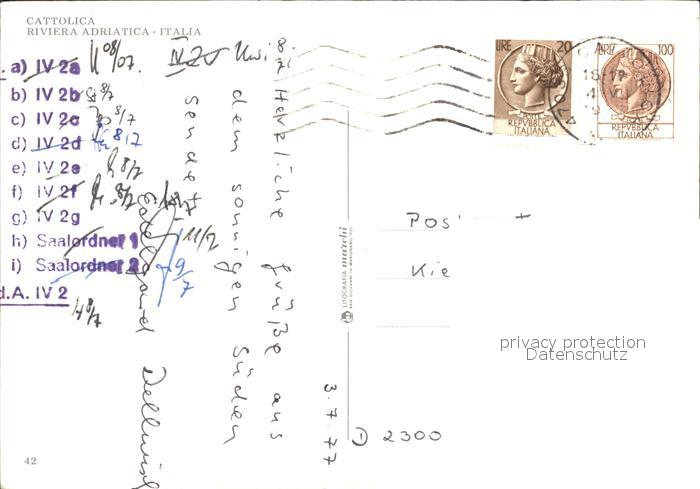 CATTOLICA
RIVIERA ADRIATICA - ITALIA
a) IV 2a
b) IV 2b
c) IV 2c
d) IV 2d
e) IV 2e
f) IV 2f
g) IV 2g
h) Saalordner 1
i) Saalordner 2
d.A. IV 2
08/07.
8/7
8/7
8/7
8/7
8/7
11/7
9/7
8/7
3.7.77
Herzliche Grüße aus
dem sonnigen Süden
sendet
LIRE 20
POSTE
REPVBBLICA
ITALIANA
LIRE 100
REPVBBLICA
ITALIANA
LITOGRAFIA
Pos
Kie
D 2300
privacy protection
Datenschutz
42